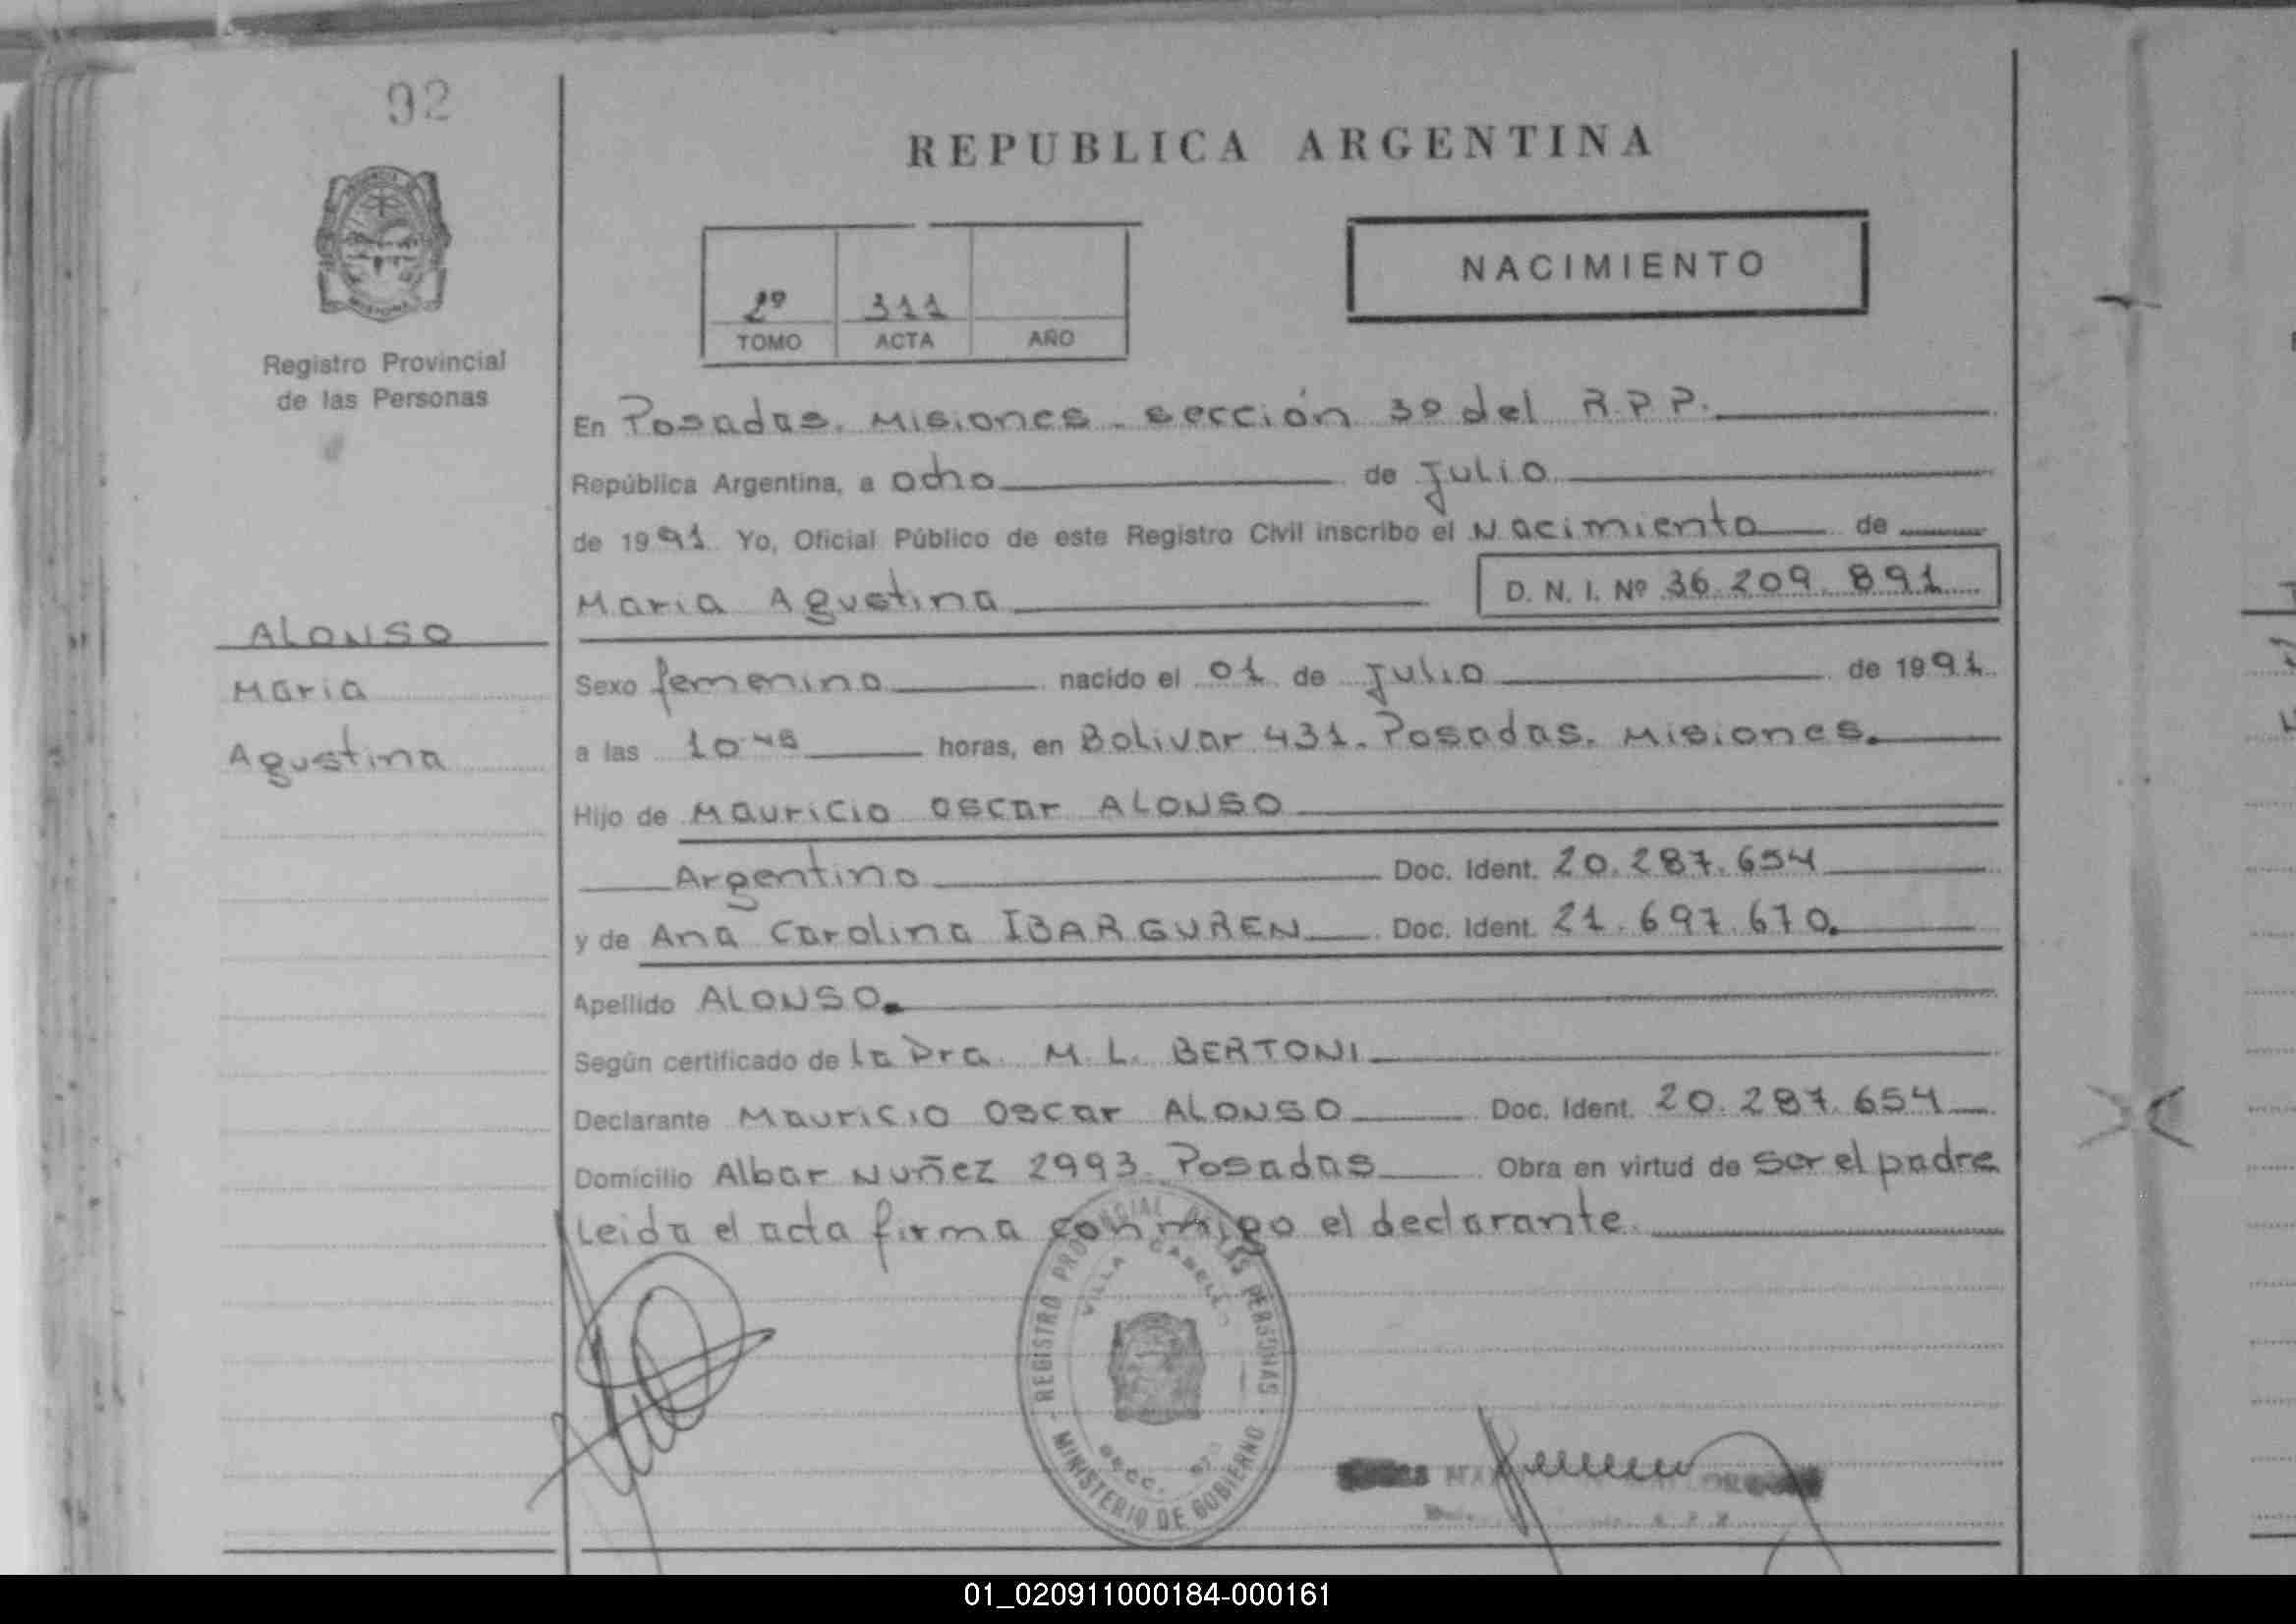 92
REPUBLICA ARGENTINA
NACIMIENTO
2º 311
TOMO ACTA AÑO
Registro Provincial
de las Personas
En Posadas. Misiones. sección 3º del R.P.P.
República Argentina, a ocho de julio
de 1991 Yo, Oficial Público de este Registro Civil inscribo el Nacimiento de
Maria Agustina D. N. I. Nº 36.209.891
ALONSO
Maria
Agustina
Sexo femenino nacido el 01 de julio de 1991
a las 10-45 horas, en Bolivar 431. Posadas. Misiones.
Hijo de Mauricio Oscar ALONSO
Argentino Doc. Ident. 20.287.654
y de Ana Carolina IBARGUREN Doc. Ident. 21.697.670.
Apellido ALONSO.
Según certificado de la Dra. M. L. BERTONI
Declarante Mauricio Oscar ALONSO Doc. Ident. 20.287.654
Domicilio Albar Nuñez 2993. Posadas Obra en virtud de ser el padre
Leida el acta firma conmigo el declarante.
REGISTRO PROVINCIAL DE LAS PERSONAS
VILLA CABELLO
SECC.
MINISTERIO DE GOBIERNO
01_020911000184-000161